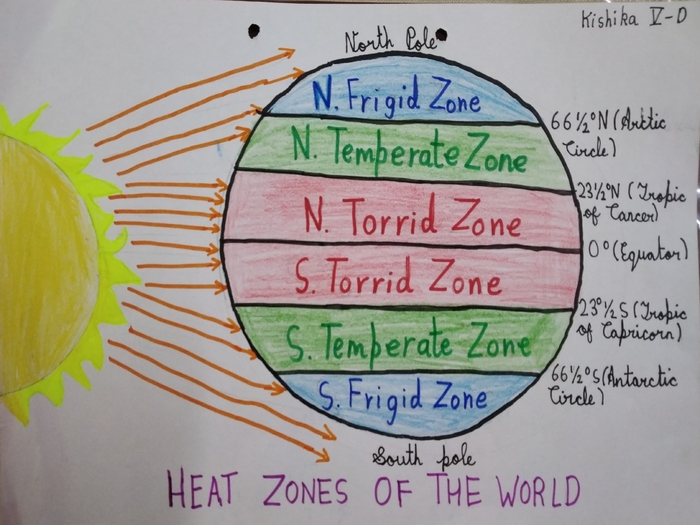 Kishika V-D
North Pole
N. Frigid Zone
66½°N (Arctic
Circle)
N. Temperate Zone
23½°N (Tropic
of Cancer)
N. Torrid Zone
0° (Equator)
S. Torrid Zone
23°½S (Tropic
of Capricorn)
S. Temperate Zone
66½°S (Antarctic
Circle)
S. Frigid Zone
South pole
HEAT ZONES OF THE WORLD